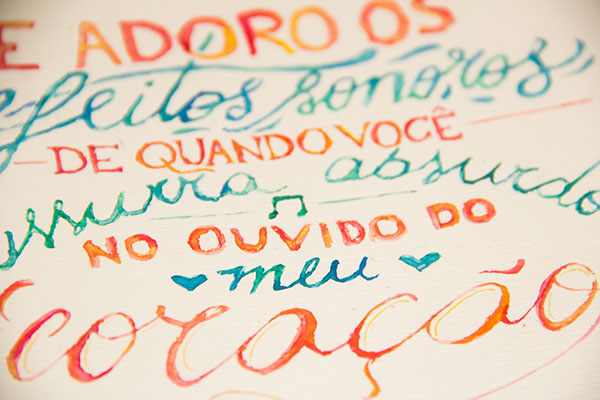 E ADORO OS
efeitos sonoros
DE QUANDO VOCÊ
sussurra absurdo
NO OUVIDO DO
meu
coração